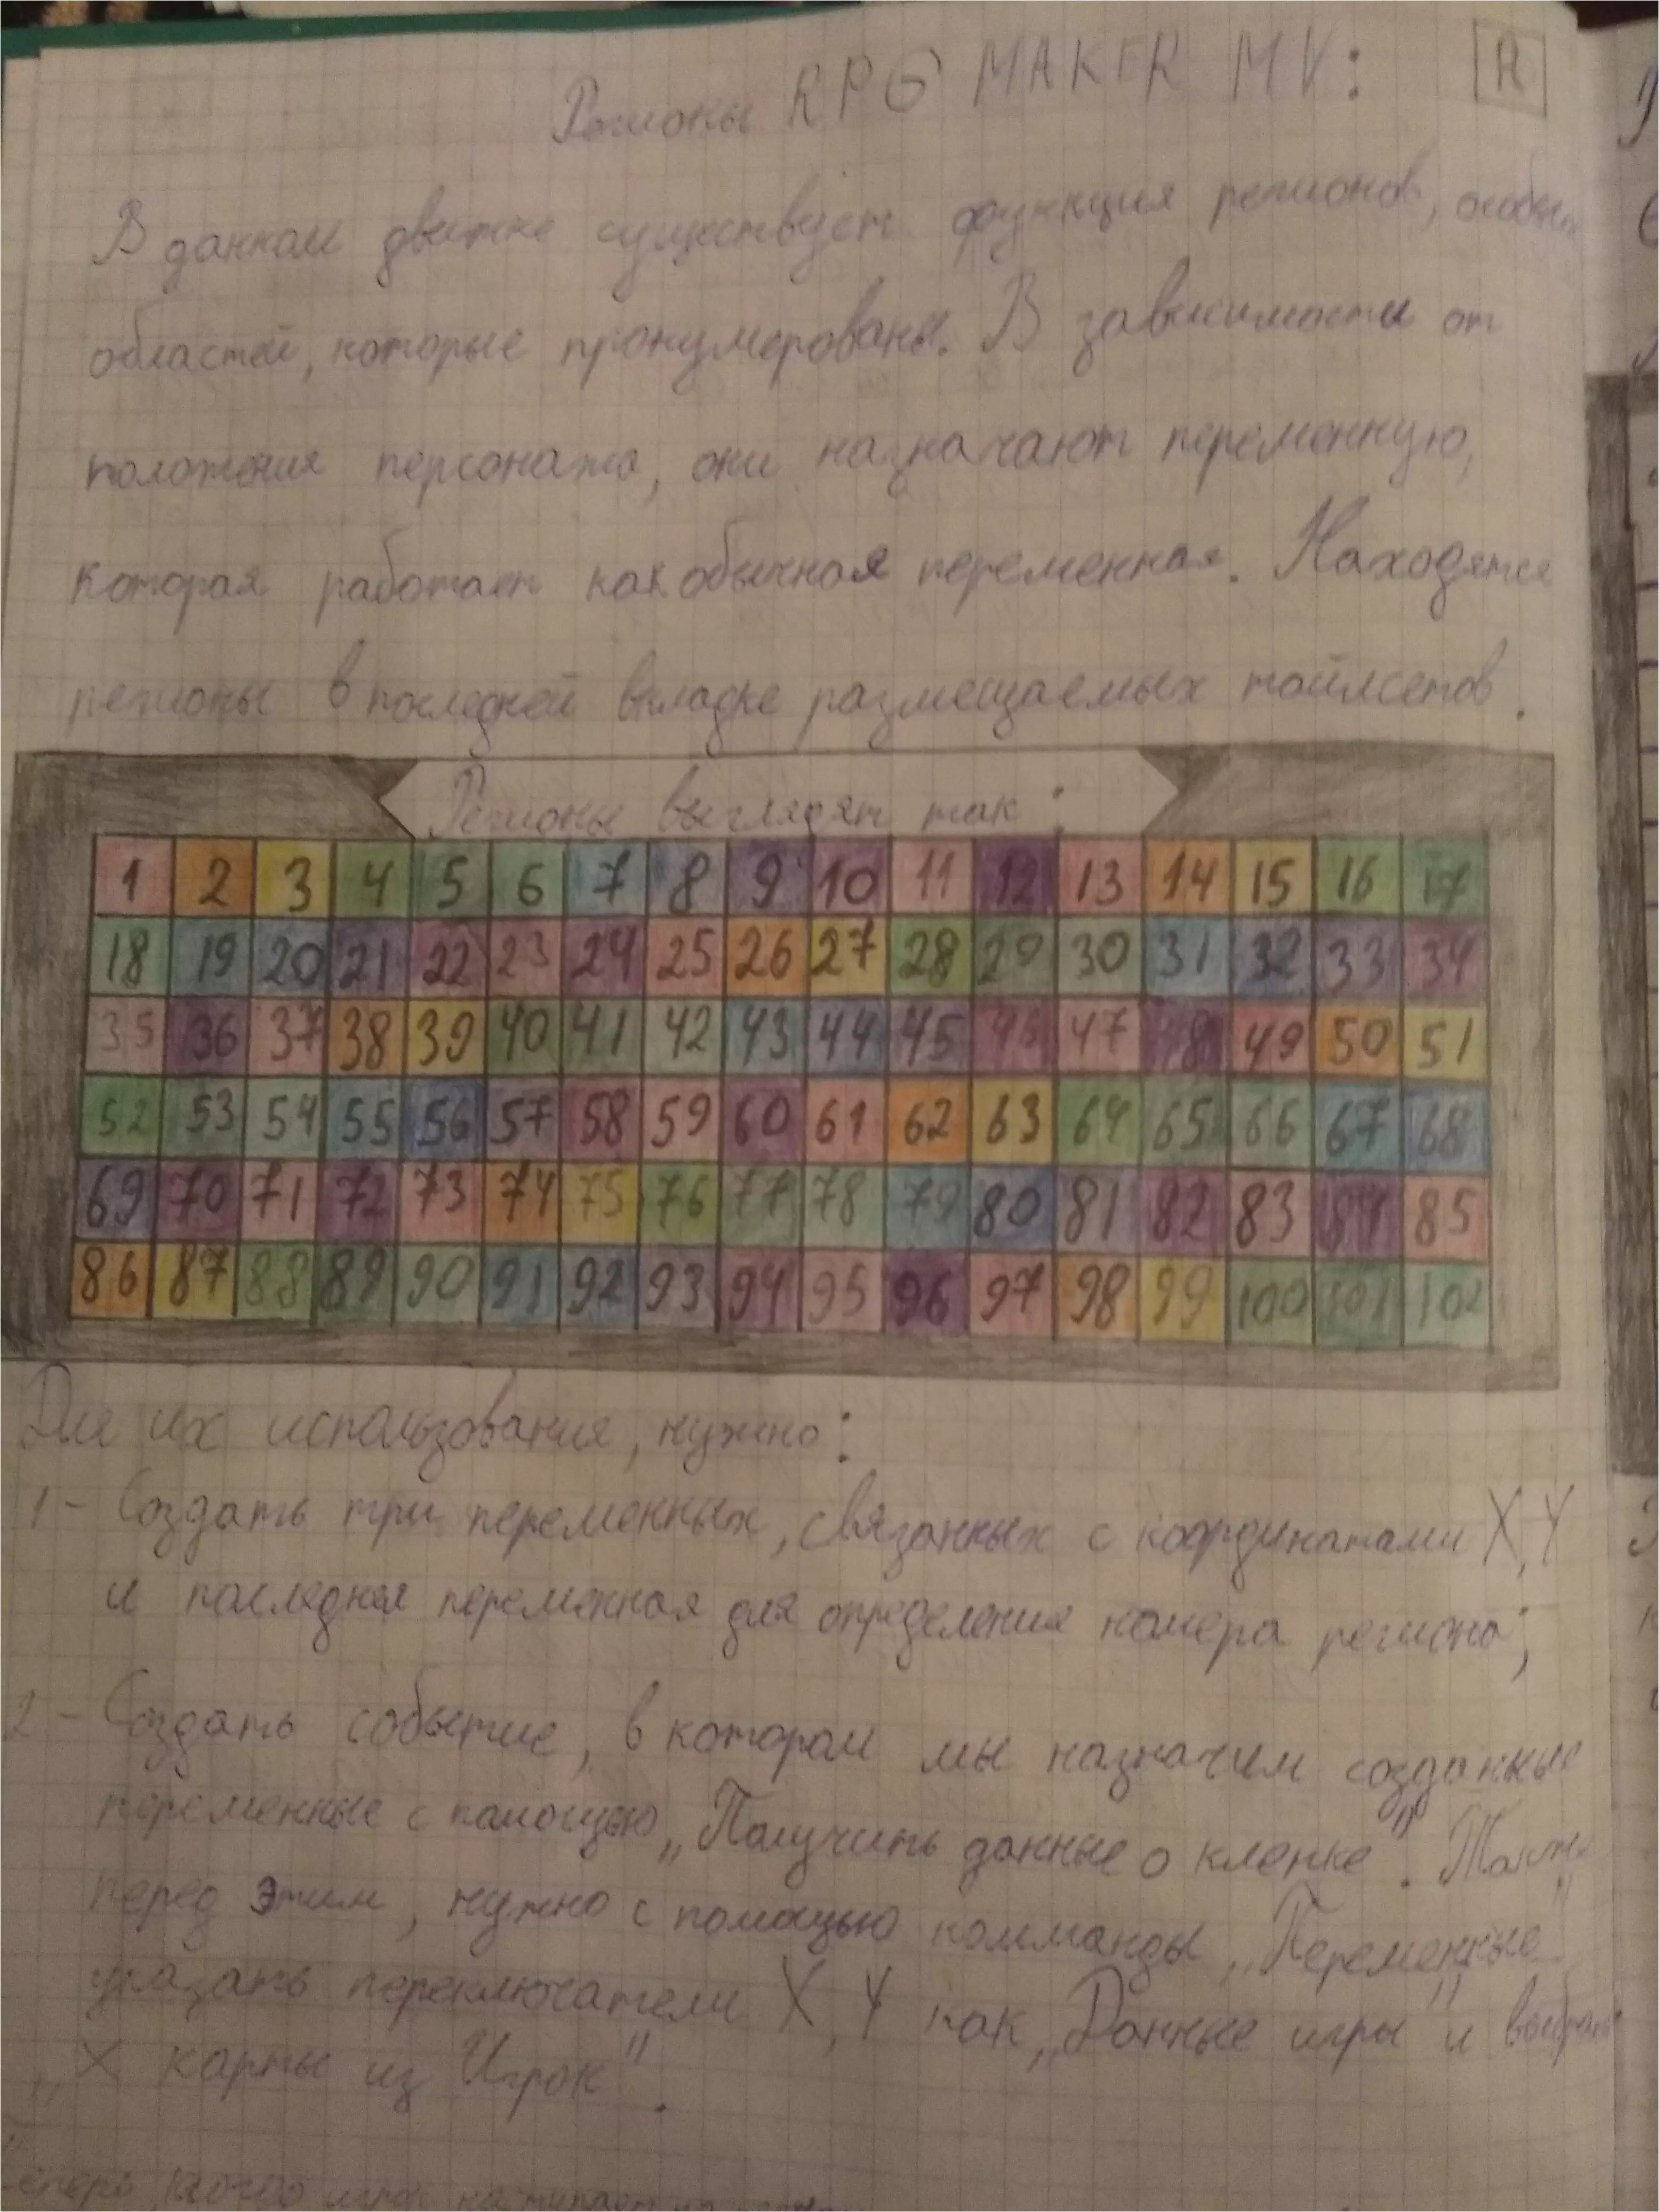 Регионы RPG MAKER MV:
R
В данном движке существует функция регионов, особых
областей, которые пронумерованы. В зависимости от
положения персонажа, они назначают переменную,
которая работает как обычная переменная. Находятся
регионы в последней вкладке размещаемых тайлсетов.
Регионы выглядят так:
1 2 3 4 5 6 7 8 9 10 11 12 13 14 15 16 17
18 19 20 21 22 23 24 25 26 27 28 29 30 31 32 33 34
35 36 37 38 39 40 41 42 43 44 45 46 47 48 49 50 51
52 53 54 55 56 57 58 59 60 61 62 63 64 65 66 67 68
69 70 71 72 73 74 75 76 77 78 79 80 81 82 83 84 85
86 87 88 89 90 91 92 93 94 95 96 97 98 99 100 101 102
Для их использования, нужно:
1- Создать три переменных, связанных с координатами X, Y
и последняя переменная для определения номера региона;
2- Создать событие, в котором мы назначим созданные
переменные с помощью „Получить данные о клетке". Также
перед этим, нужно с помощью комманды „Переменные"
указать переключатели X, Y как „Данные игры" и выбрать
„X карты из Игрок".
когда игрок наступает на